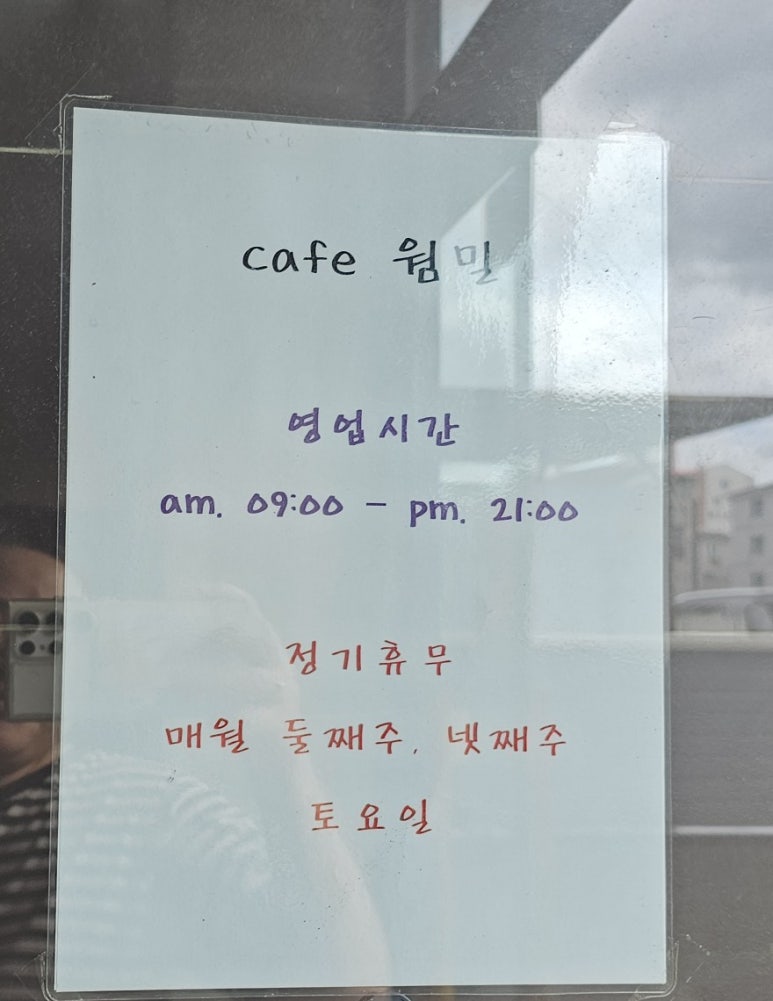 cafe 웜밀
영업시간
am. 09:00 - pm. 21:00
정기휴무
매월 둘째주, 넷째주
토요일